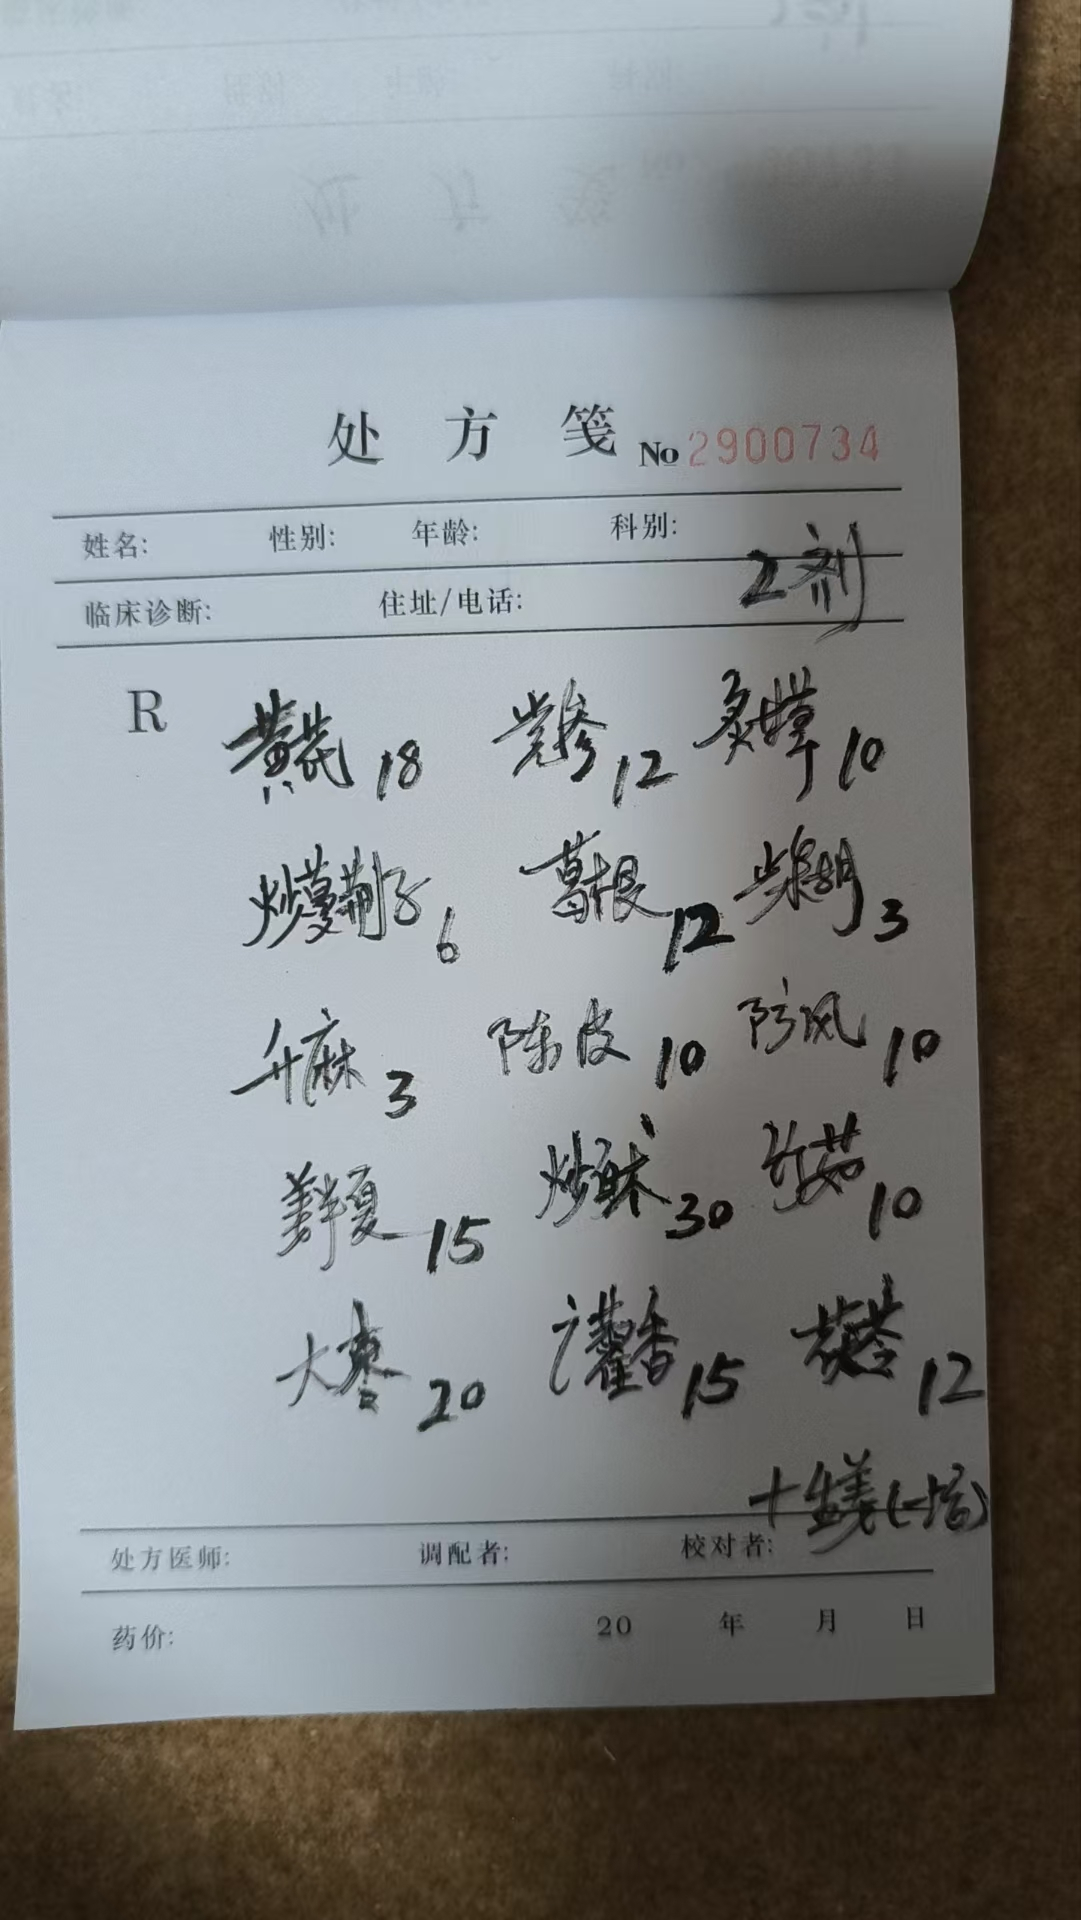 处 方 笺 No 2900734
姓名: 性别: 年龄: 科别:
临床诊断: 住址/电话: 2剂
R 黄芪 18 党参 12 炙甘草 10
炒蔓荆子 6 葛根 12 柴胡 3
升麻 3 陈皮 10 防风 10
姜半夏 15 炒白术 30 竹茹 10
大枣 20 广藿香 15 茯苓 12
十生姜(一块)
处方医师: 调配者: 校对者:
药价: 20 年 月 日